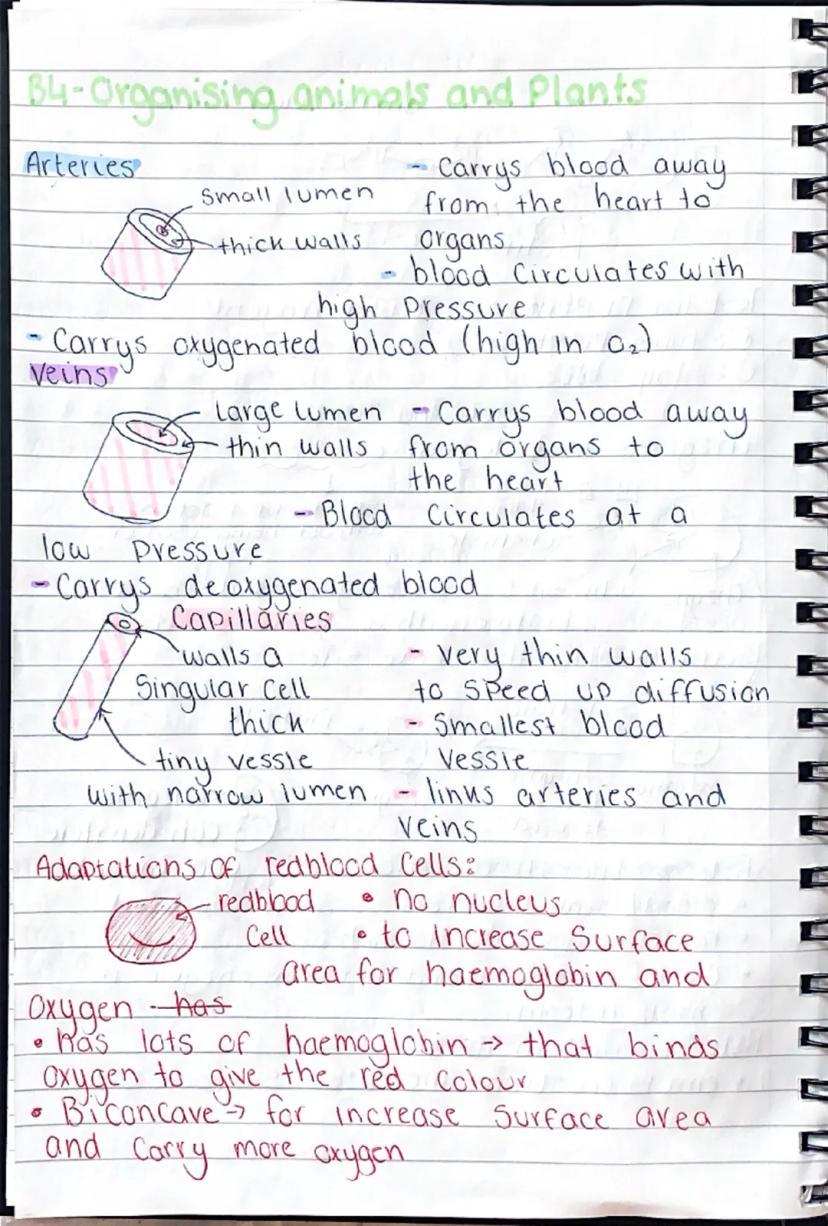 B4-Organising animals and Plants
Arteries
- Carrys blood away
small lumen
from the heart to
thick walls
organs
- blood Circulates with
high Pressure
- Carrys oxygenated blood (high in O₂)
Veins
large lumen
- Carrys blood away
thin walls
from organs to
the heart
- Blood Circulates at a
low Pressure
- Carrys deoxygenated blood
Capillaries
walls a
Singular Cell
thick
tiny vessle
with narrow lumen
- very thin walls
to speed up diffusion
- Smallest blood
vessle
- links arteries and
veins
Adaptations of redblood Cells:
redblood
Cell
• no nucleus
• to Increase Surface
area for haemoglobin and
Oxygen has
• has lots of haemoglobin → that binds
Oxygen to give the red colour
• Biconcave → for increase Surface area
and Carry more oxygen